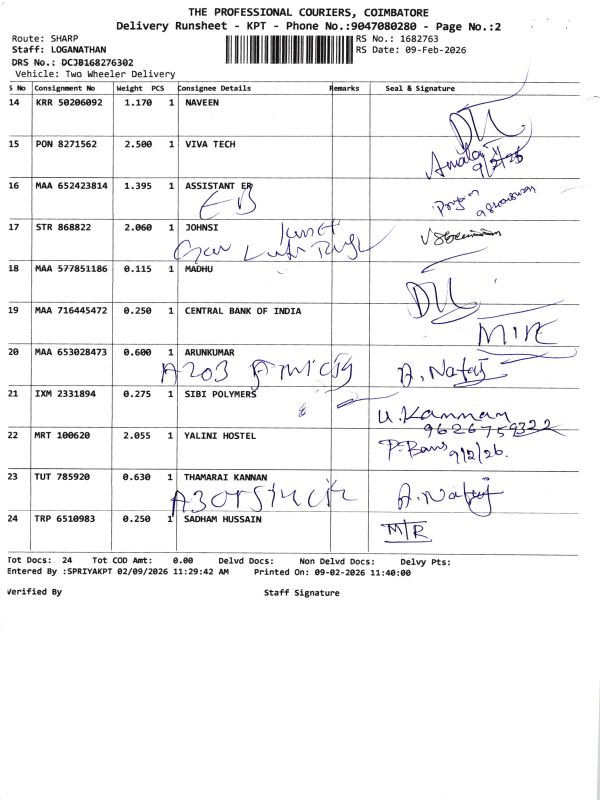 THE PROFESSIONAL COURIERS, COIMBATORE
Delivery Runsheet - KPT - Phone No.:9047080280 - Page No.:2
Route: SHARP
RS No.: 1682763
Staff: LOGANATHAN
RS Date: 09-Feb-2026
DRS No.: DCJB168276302
Vehicle: Two Wheeler Delivery
S No Consignment No Weight PCS Consignee Details Remarks Seal & Signature
14 KRR 50206092 1.170 1 NAVEEN
DU
15 PON 8271562 2.500 1 VIVA TECH
9/2/26
16 MAA 652423814 1.395 1 ASSISTANT ER
EB
17 STR 868822 2.060 1 JOHNSI
18 MAA 577851186 0.115 1 MADHU
DU
19 MAA 716445472 0.250 1 CENTRAL BANK OF INDIA
20 MAA 653028473 0.600 1 ARUNKUMAR
A203
21 IXM 2331894 0.275 1 SIBI POLYMERS
U.Kannan
9626759322
22 MRT 100620 2.055 1 YALINI HOSTEL
9/2/26.
23 TUT 785920 0.630 1 THAMARAI KANNAN
24 TRP 6510983 0.250 1 SADHAM HUSSAIN
M/R
Tot Docs: 24 Tot COD Amt: 0.00 Delvd Docs: Non Delvd Docs: Delvy Pts:
Entered By :SPRIYAKPT 02/09/2026 11:29:42 AM Printed On: 09-02-2026 11:40:00
Verified By Staff Signature